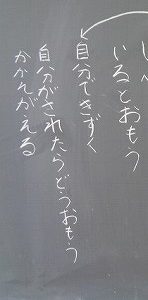 いるとおもう
自分できずく
自分がされたらどうおもう
かかんがえる